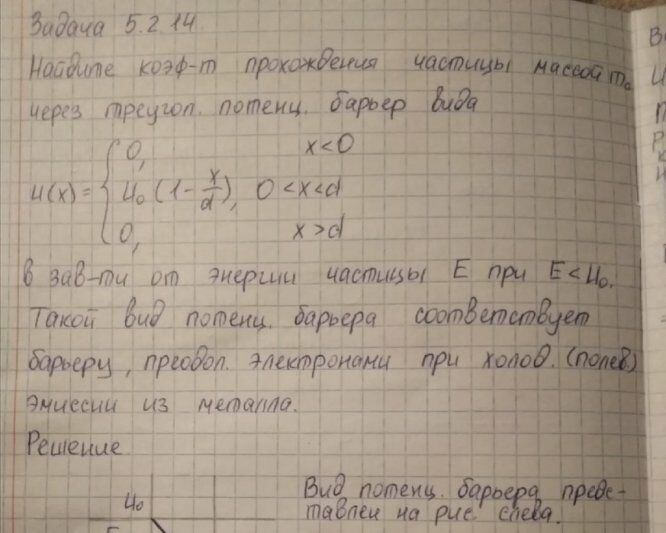 Задача 5.2.14
Найдите коэф-т прохождения частицы массой m₀
через треугол. потенц. барьер вида
0, x<0
U(x)= U₀ (1-x/d), 0<x<d
0, x>d
в зав-ти от энергии частицы E при E<U₀.
Такой вид потенц. барьера соответствует
барьеру, преодол. электронами при холод. (полев.)
эмиссии из металла.
Решение
U₀
Вид потенц. барьера предс-
тавлен на рис. слева.